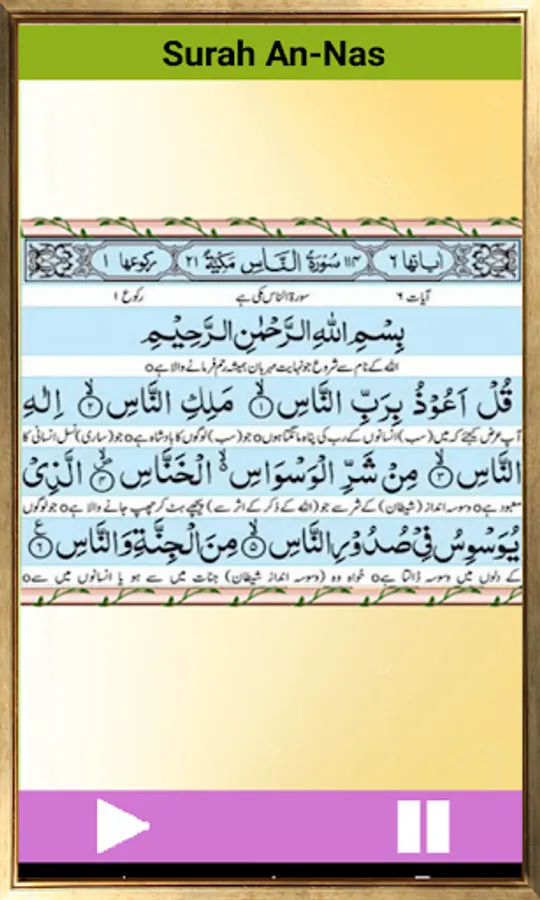 Surah An-Nas
اٰیاتها ٦ ١١٤ سُوْرَةُ النَّاسِ مَكِّيَّةٌ ٢١ رکوعها ١
آیات ٦ سورۃ الناس مکی ہے رکوع ١
بِسْمِ اللهِ الرَّحْمٰنِ الرَّحِيْمِ
اللہ کے نام سے شروع جو نہایت مہربان ہمیشہ رحم فرمانے والا ہے o
قُلْ اَعُوْذُ بِرَبِّ النَّاسِ ۙ﴿١﴾ مَلِكِ النَّاسِ ۙ﴿٢﴾ اِلٰهِ
آپ عرض کیجئے کہ میں (سب) انسانوں کے رب کی پناہ مانگتا ہوں o جو (سب) لوگوں کا بادشاہ ہے o جو (ساری) نسل انسانی کا
النَّاسِ ۙ﴿٣﴾ مِنْ شَرِّ الْوَسْوَاسِ ۙ۬ الْخَنَّاسِ ۪ۙ﴿٤﴾ الَّذِيْ
معبود ہے o وسوسہ انداز (شیطان) کے شر سے جو (اللہ کے ذکر کے اثر سے) پیچھے ہٹ کر چھپ جانے والا ہے o جو لوگوں
يُوَسْوِسُ فِيْ صُدُوْرِ النَّاسِ ۙ﴿٥﴾ مِنَ الْجِنَّةِ وَالنَّاسِ ﴿٦﴾ ع
کے دلوں میں وسوسہ ڈالتا ہے o خواہ وہ (وسوسہ انداز شیطان) جنات میں سے ہو یا انسانوں میں سے o